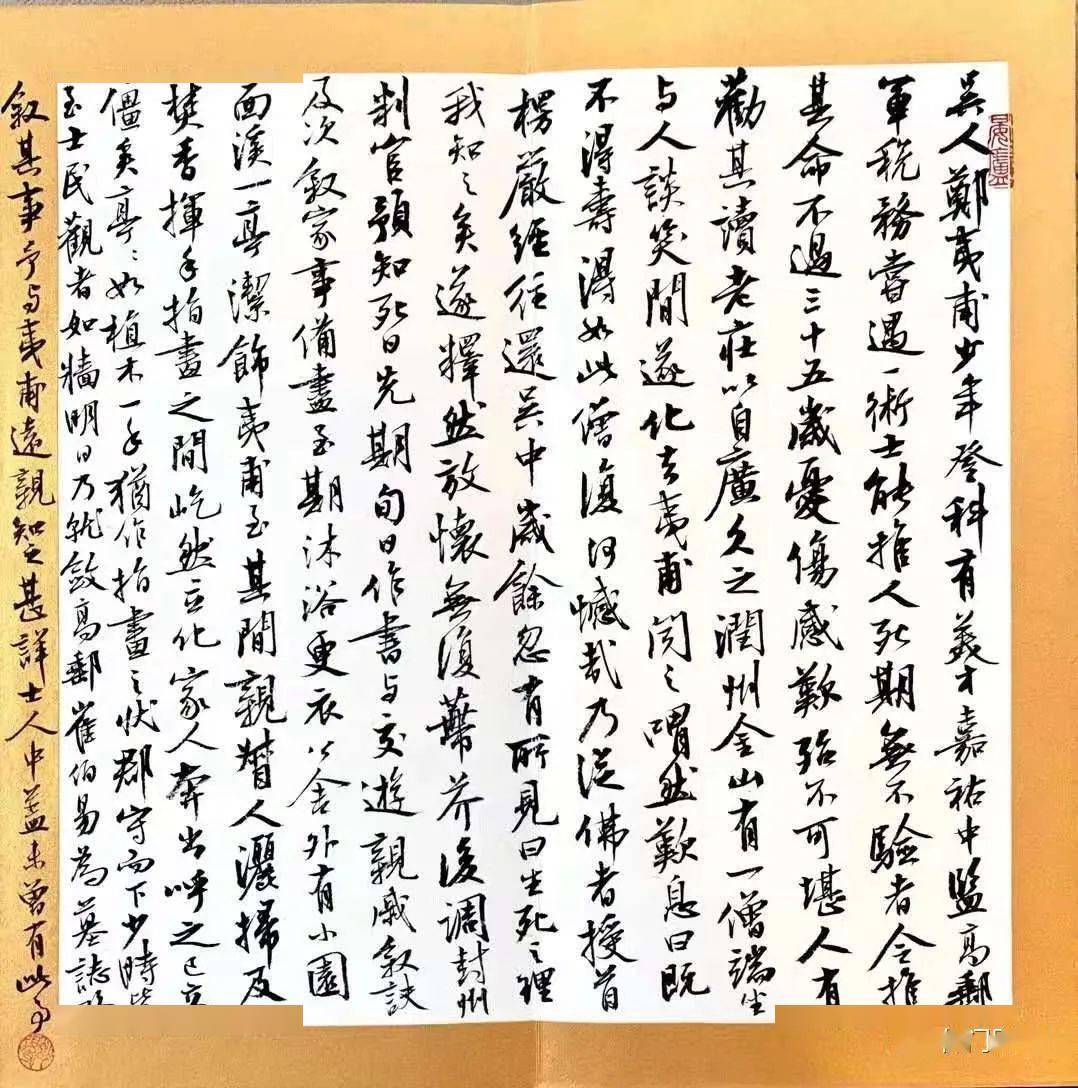 吳人鄭夷甫少年登科有美才嘉祐中監高郵
軍稅務嘗遇一術士能推人死期無不驗者令推
其命不過三十五歲憂傷感歎殆不可堪人有
勸其讀老莊以自廣久之潤州金山有一僧端坐
與人談笑間遂化去夷甫聞之喟然歎息曰既
不得壽得如此僧復何憾哉乃從佛者授首
楞嚴經往還吳中歲餘忽有所見曰生死之理
我知之矣遂釋然放懷無復蔕芥後調封州
判官預知死日先期旬日作書與交遊親戚敘訣
及次敘家事備盡至期沐浴更衣公舍外有小園
面溪一亭潔飾夷甫至其間親督人灑掃及
焚香揮手指畫之間屹然立化家人奔出呼之已立
僵矣亭亭如植木一手猶作指畫之狀郡守而下少時皆
至士民觀者如牆明日乃就斂高郵崔伯易為墓誌
敘其事予與夷甫遠親知之甚詳士人中蓋未曾有此事